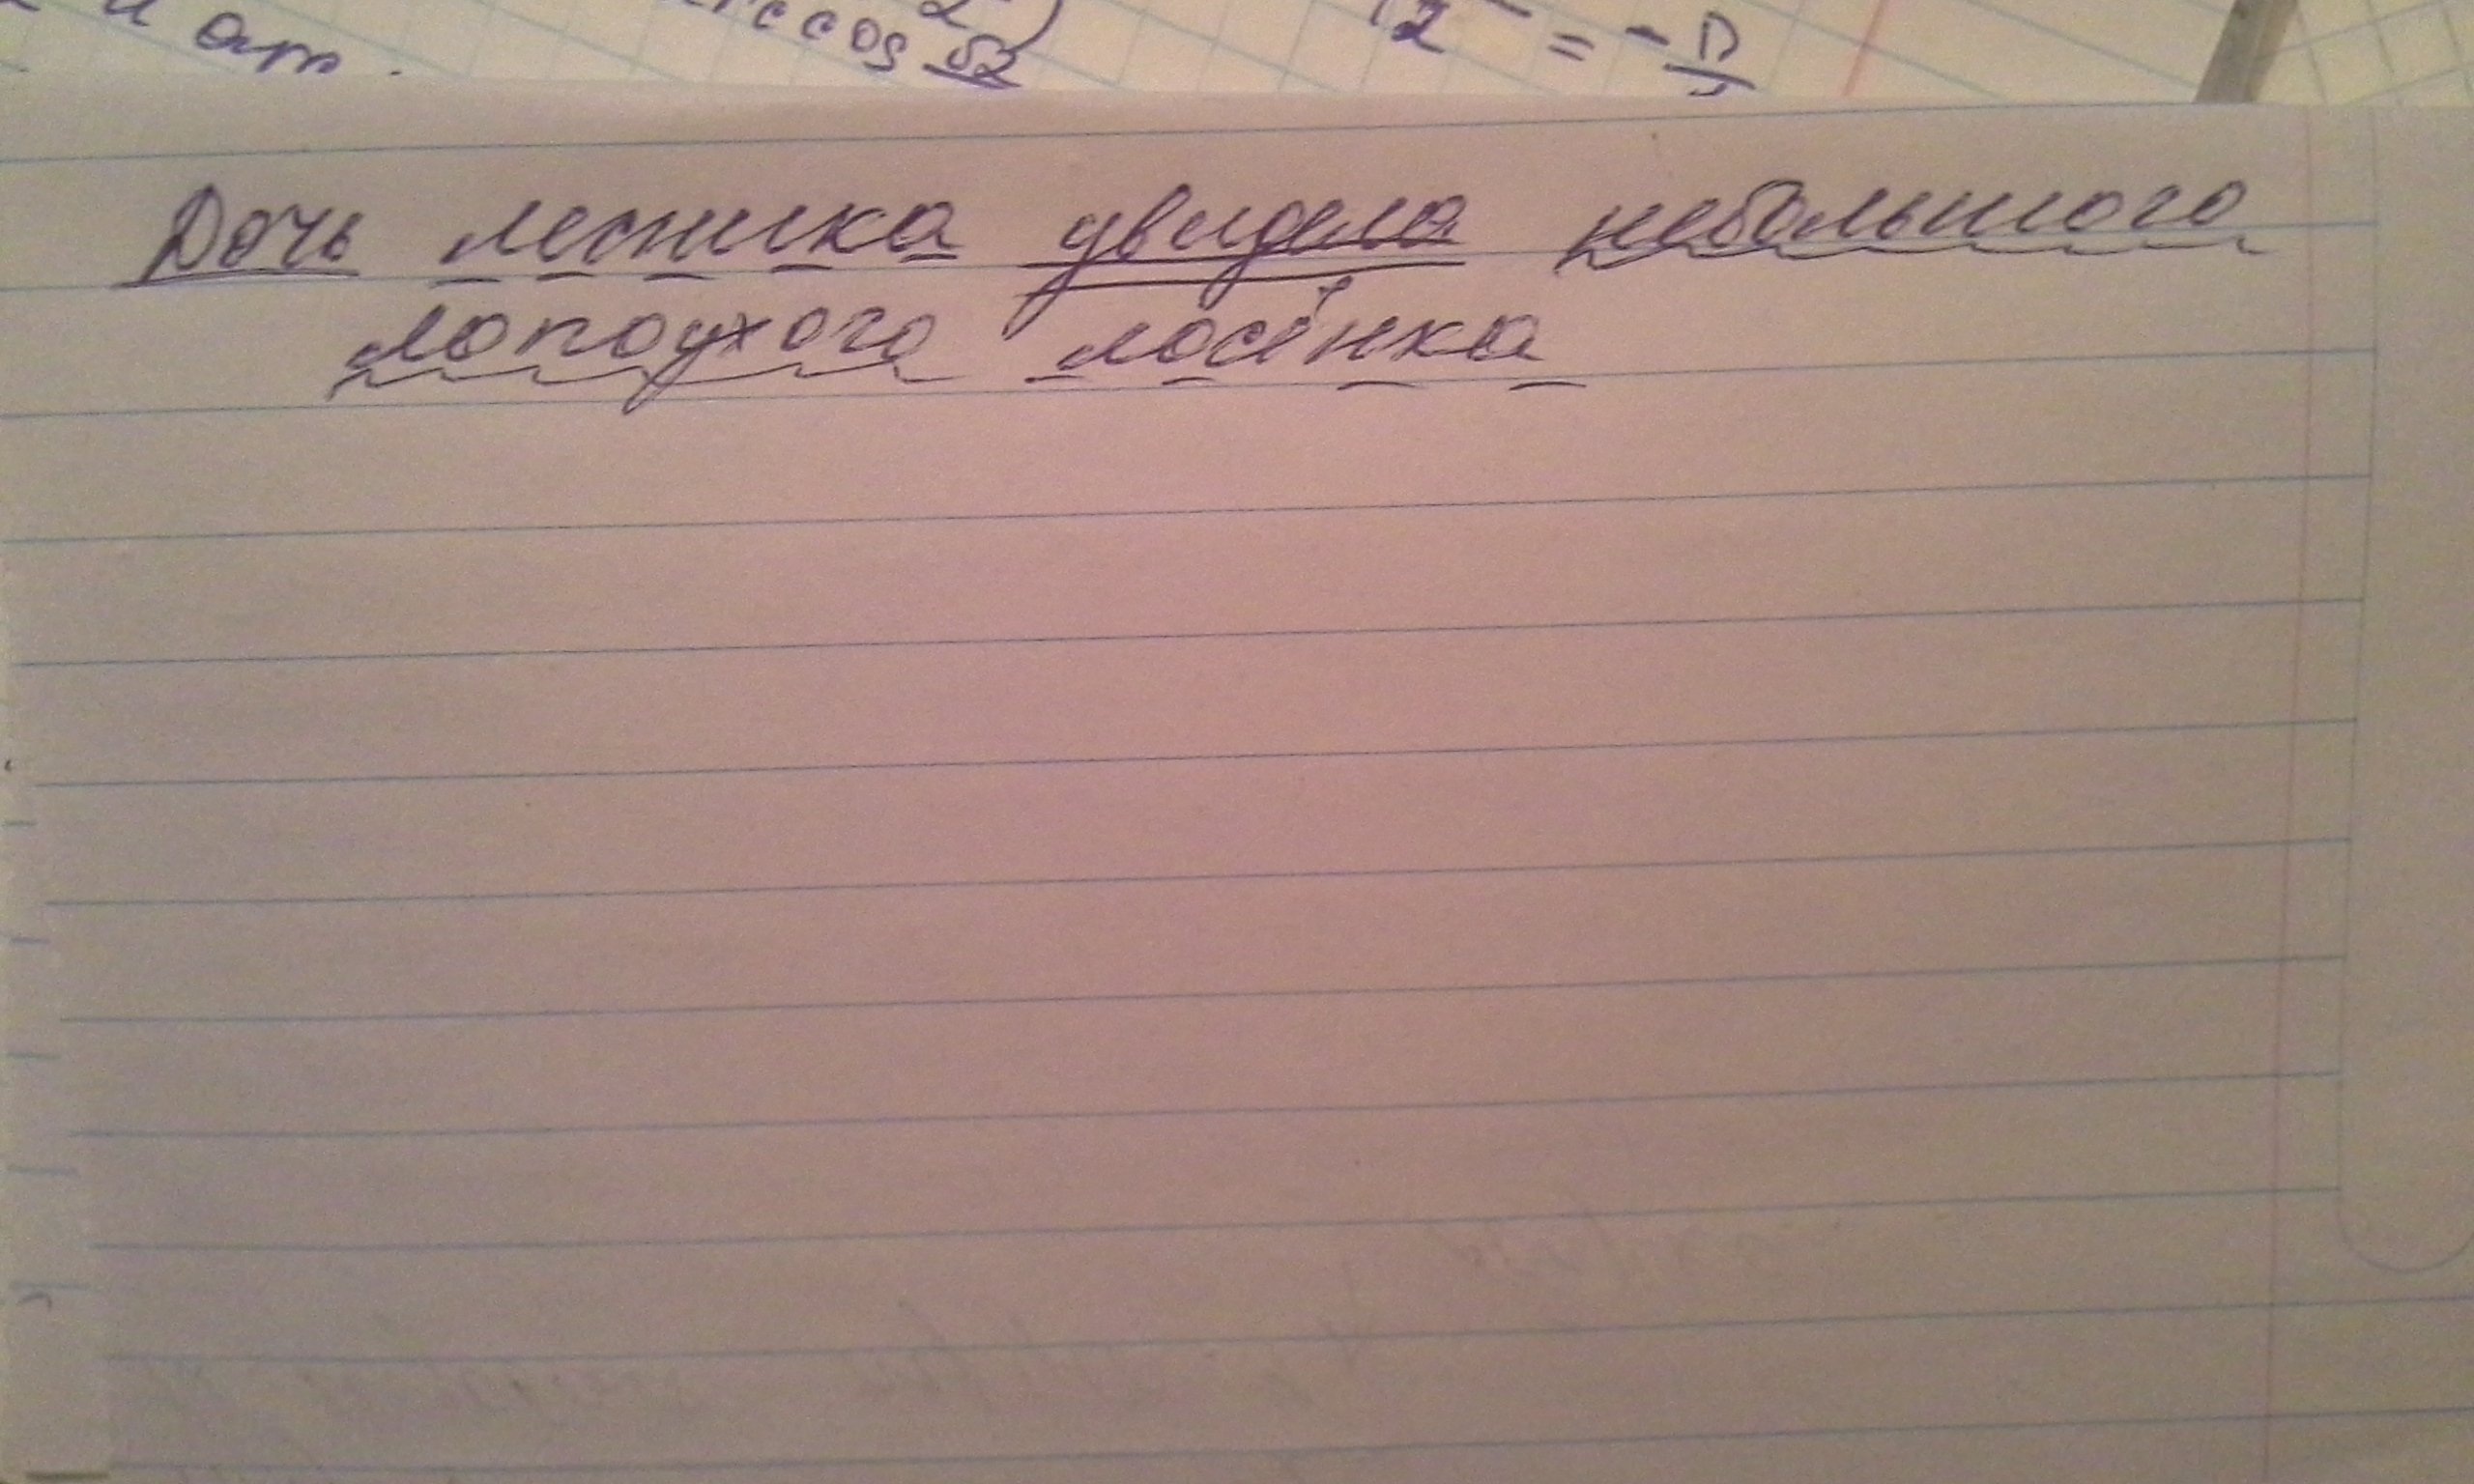 и от.
arccos √2
2 = - П
Дочь лесника увидела небольшого
лопоухого лосёнка